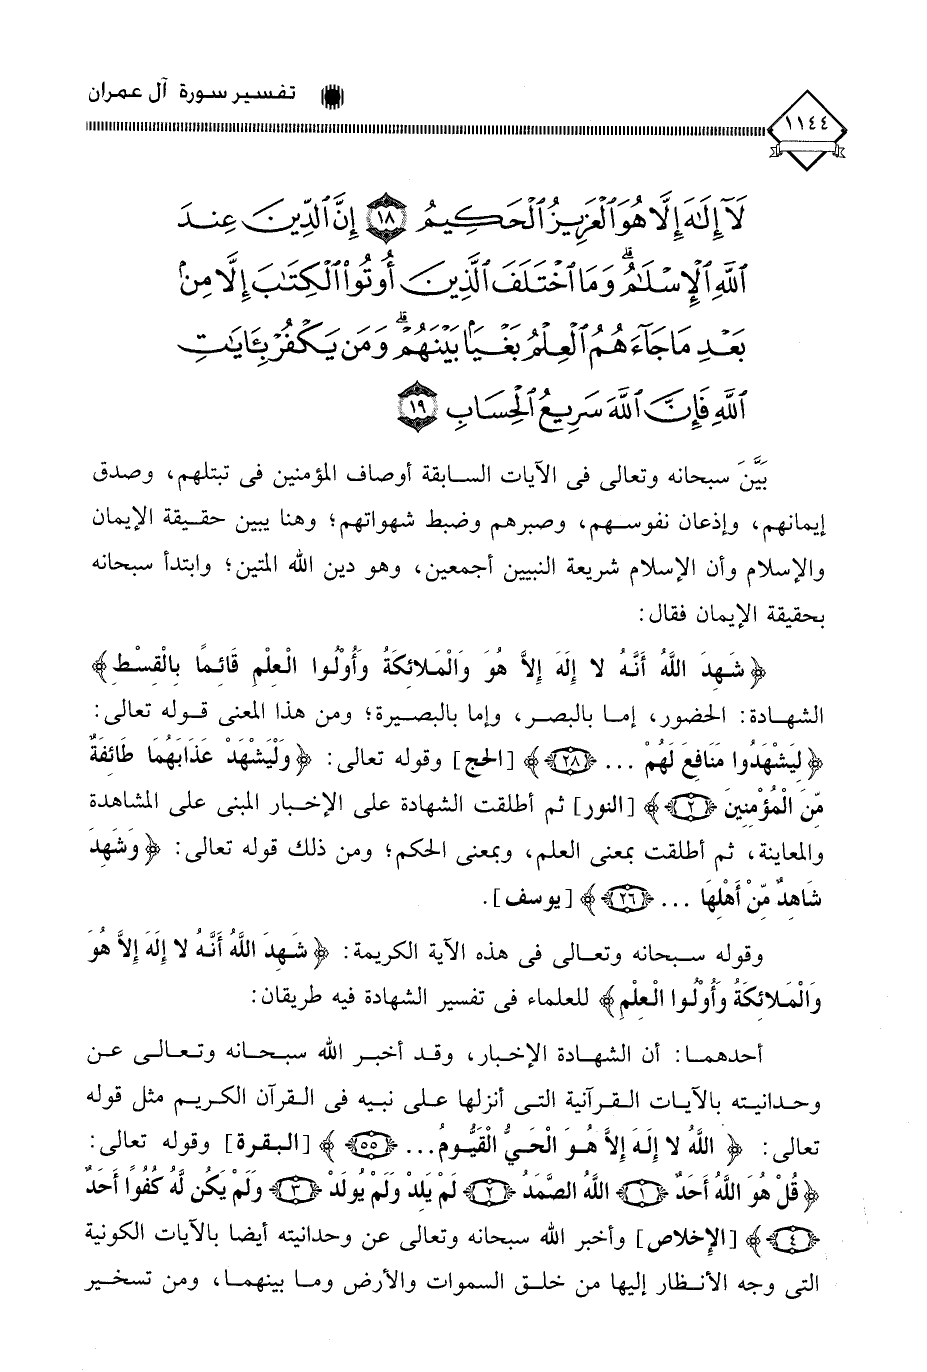 تفسير سورة آل عمران
١١٤٤
لَآ إِلَٰهَ إِلَّا هُوَ ٱلْعَزِيزُ ٱلْحَكِيمُ ١٨ إِنَّ ٱلدِّينَ عِندَ
ٱللَّهِ ٱلْإِسْلَٰمُ ۗ وَمَا ٱخْتَلَفَ ٱلَّذِينَ أُوتُوا۟ ٱلْكِتَٰبَ إِلَّا مِنۢ
بَعْدِ مَا جَآءَهُمُ ٱلْعِلْمُ بَغْيًۢا بَيْنَهُمْ ۗ وَمَن يَكْفُرْ بِـَٔايَٰتِ
ٱللَّهِ فَإِنَّ ٱللَّهَ سَرِيعُ ٱلْحِسَابِ ١٩
بَيَّنَ سبحانه وتعالى فى الآيات السابقة أوصاف المؤمنين فى تبتلهم، وصدق
إيمانهم، وإذعان نفوسهم، وصبرهم وضبط شهواتهم؛ وهنا يبين حقيقة الإيمان
والإسلام وأن الإسلام شريعة النبيين أجمعين، وهو دين الله المتين؛ وابتدأ سبحانه
بحقيقة الإيمان فقال:
﴿شَهِدَ اللَّهُ أَنَّهُ لا إِلَهَ إِلاَّ هُوَ وَالْمَلائِكَةُ وَأُوْلُوا الْعِلْمِ قَائِمًا بِالْقِسْطِ﴾
الشهادة: الحضور، إما بالبصر، وإما بالبصيرة؛ ومن هذا المعنى قوله تعالى:
﴿لِيَشْهَدُوا مَنَافِعَ لَهُمْ ... ﴿٢٨﴾﴾ [الحج] وقوله تعالى: ﴿وَلْيَشْهَدْ عَذَابَهُمَا طَائِفَةٌ
مِّنَ الْمُؤْمِنِينَ ﴿٢﴾﴾ [النور] ثم أطلقت الشهادة على الإخبار المبنى على المشاهدة
والمعاينة، ثم أطلقت بمعنى العلم، وبمعنى الحكم؛ ومن ذلك قوله تعالى: ﴿وَشَهِدَ
شَاهِدٌ مِّنْ أَهْلِهَا ... ﴿٢٦﴾﴾ [يوسف].
وقوله سبحانه وتعالى فى هذه الآية الكريمة: ﴿شَهِدَ اللَّهُ أَنَّهُ لا إِلَهَ إِلاَّ هُوَ
وَالْمَلائِكَةُ وَأُوْلُوا الْعِلْمِ﴾ للعلماء فى تفسير الشهادة فيه طريقان:
أحدهما: أن الشهادة الإخبار، وقد أخبر الله سبحانه وتعالى عن
وحدانيته بالآيات القرآنية التى أنزلها على نبيه فى القرآن الكريم مثل قوله
تعالى: ﴿اللَّهُ لا إِلَهَ إِلاَّ هُوَ الْحَيُّ الْقَيُّومُ... ﴿٥٥﴾﴾ [البقرة] وقوله تعالى:
﴿قُلْ هُوَ اللَّهُ أَحَدٌ ﴿١﴾ اللَّهُ الصَّمَدُ ﴿٢﴾ لَمْ يَلِدْ وَلَمْ يُولَدْ ﴿٣﴾ وَلَمْ يَكُن لَّهُ كُفُوًا أَحَدٌ
﴿٤﴾﴾ [الإخلاص] وأخبر الله سبحانه وتعالى عن وحدانيته أيضا بالآيات الكونية
التى وجه الأنظار إليها من خلق السموات والأرض وما بينهما، ومن تسخير